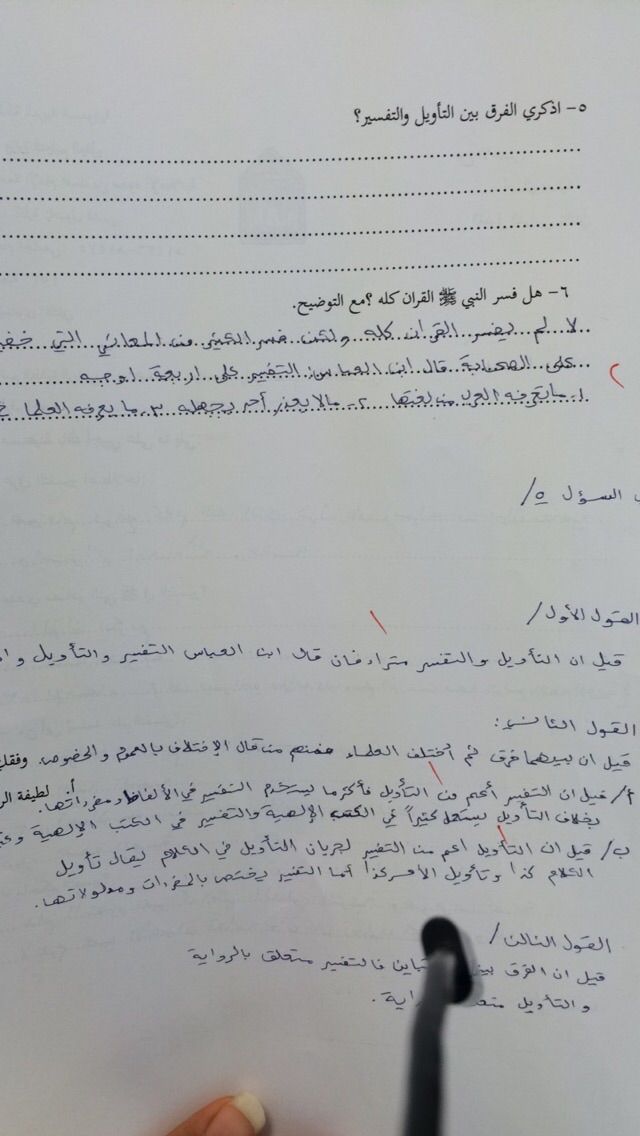 ٥- اذكري الفرق بين التأويل والتفسير؟
٦- هل فسر النبي ﷺ القران كله ؟مع التوضيح.
لا لم يفسر القران كله ولكن فسر الكثير من المعاني التي
على الصحابة قال ابن العباس: التفسير على اربعة اوجه
١- ما يعرفه العرب من لغتها ٢- مالا يعذر أحد بجهله ٣- ما يعرفه العلما
٢
السؤل ٥/
القول الأول/
قيل ان التأويل والتفسر مترادفان قال ابن العباس التفسير والتأويل
القول الثاني:
قيل ان بينهما فرق ثم اختلف العلماء فمنهم من قال الإختلاف بالعموم والخصوص. وفقك
أ/ قيل ان التفسير أعم من التأويل فأكثر ما يستخدم التفسير في الألفاظ ومفرداتها. لطيفة
بخلاف التأويل يستعمل كثيراً في الكتب الإلهية والتفسير في الكتب الإلهية
ب/ قيل ان التأويل اعم من التفسير لجريان التأويل في الكلام يقال تأويل
الكلام كذا وتأويل الأمر كذا أما التفسير يختص بالمفردات ومدلولاتها.
القول الثالث/
قيل ان الفرق فالتفسير متعلق بالرواية
والتأويل